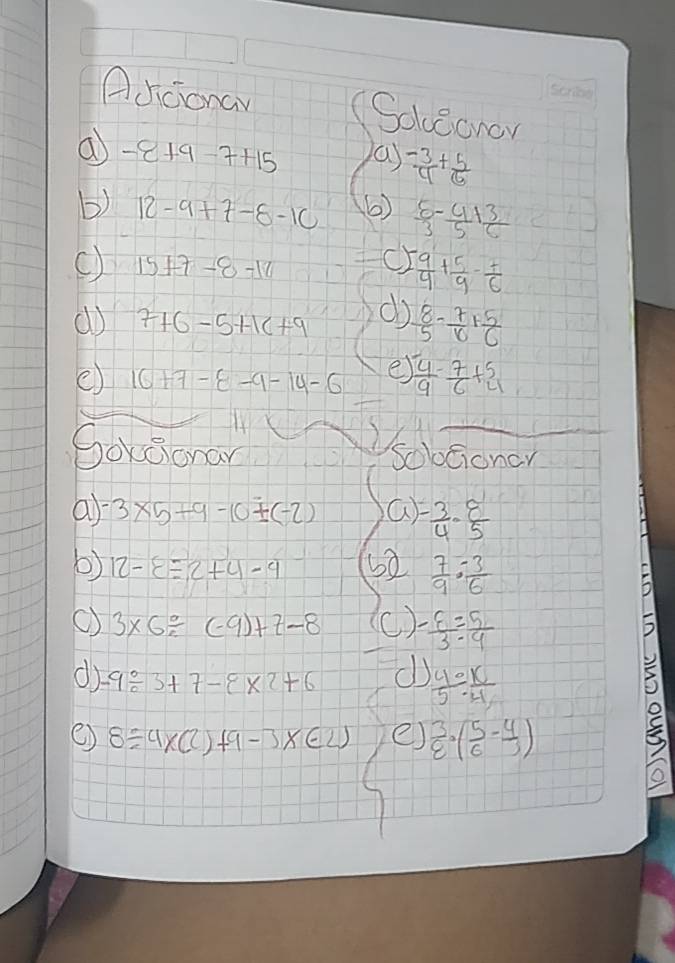 Adicionar
a) -8+9-7+15
b) 12-9+7-8-10
c) 15+7-8-12
d) 7+6-5+12+9
e) 16+7-8-9-14-6
Solucionar
a) -3/4+5/6
b) 8/3-4/5+3/6
c) -9/4+5/9-7/6
d) 8/5-7/6+5/6
e) -4/9-7/6+5/4
Solucionar
a) -3×5+9-10÷(-2)
b) 12-8÷2+4-9
c) 3×6÷(-9)+7-8
d) -9÷3+7-8×2+6
e) 8÷4×(2)+9-3×(-2)
Solucionar
a) -3/4·8/5
b) 7/9:-3/6
c) -8/3÷5/9
d) 4/5
e) 3/8·(5/6-4/3)
Scribe